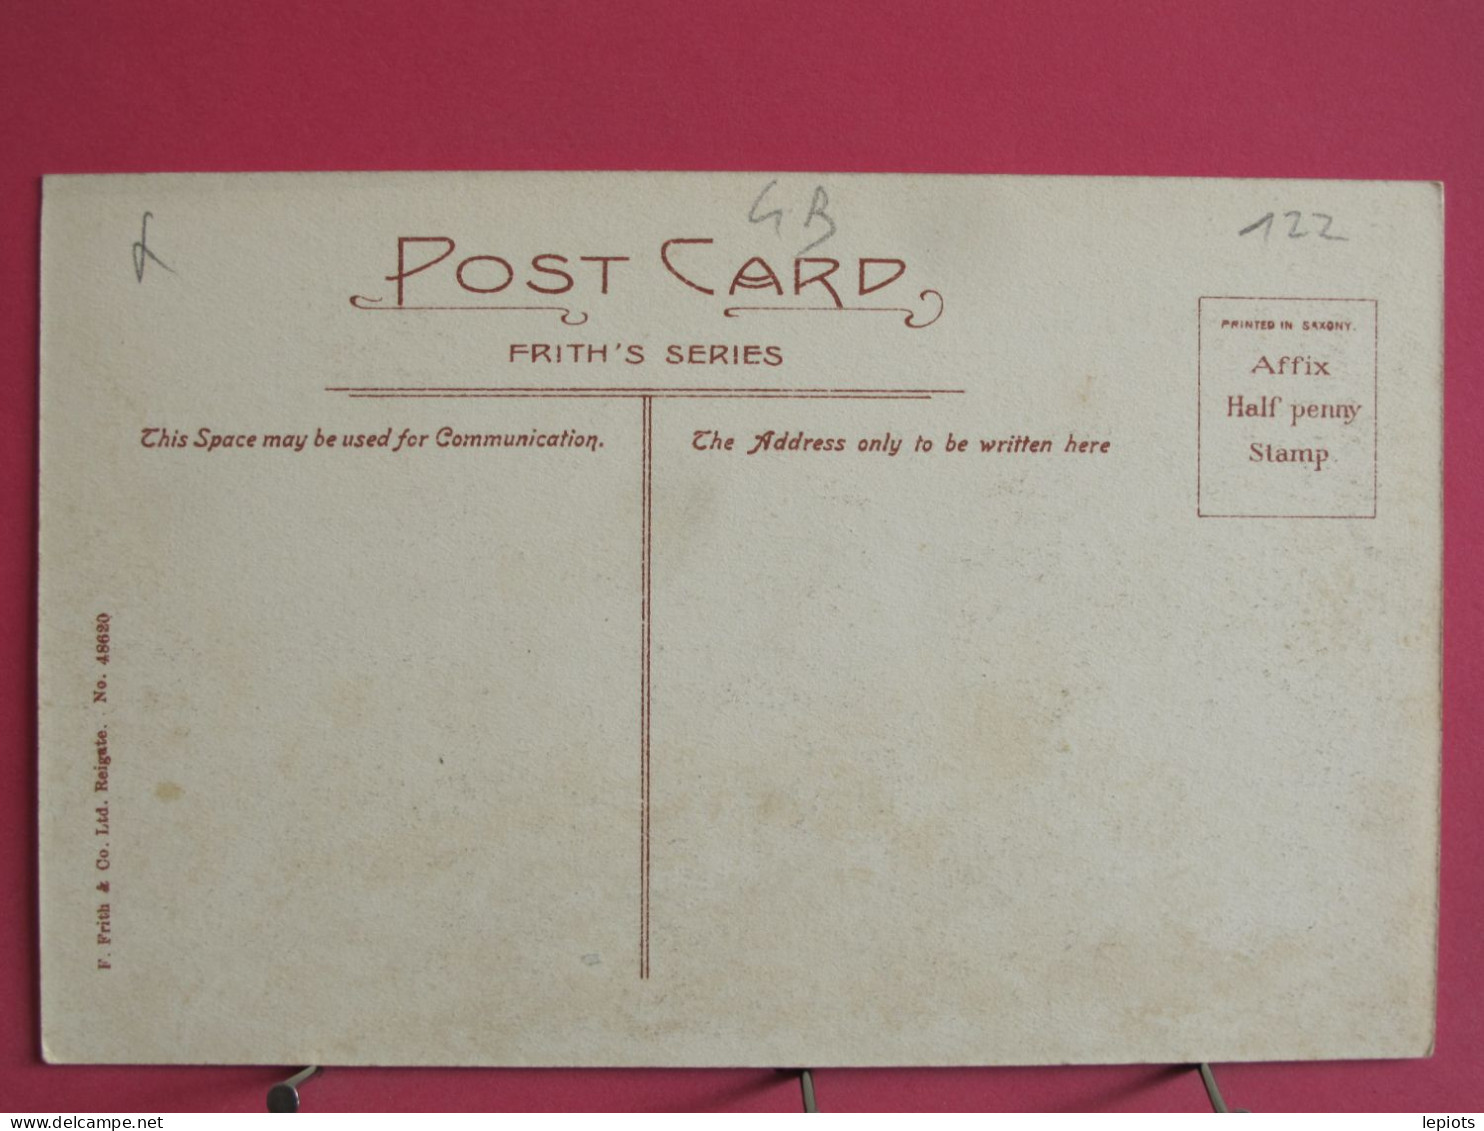 GB
122
POST CARD
FRITH'S SERIES
PRINTED IN SAXONY.
Affix
Half penny
Stamp
This Space may be used for Communication.
The Address only to be written here
F. Frith & Co. Ltd. Reigate. No. 48620
delcampe.net
lepiots